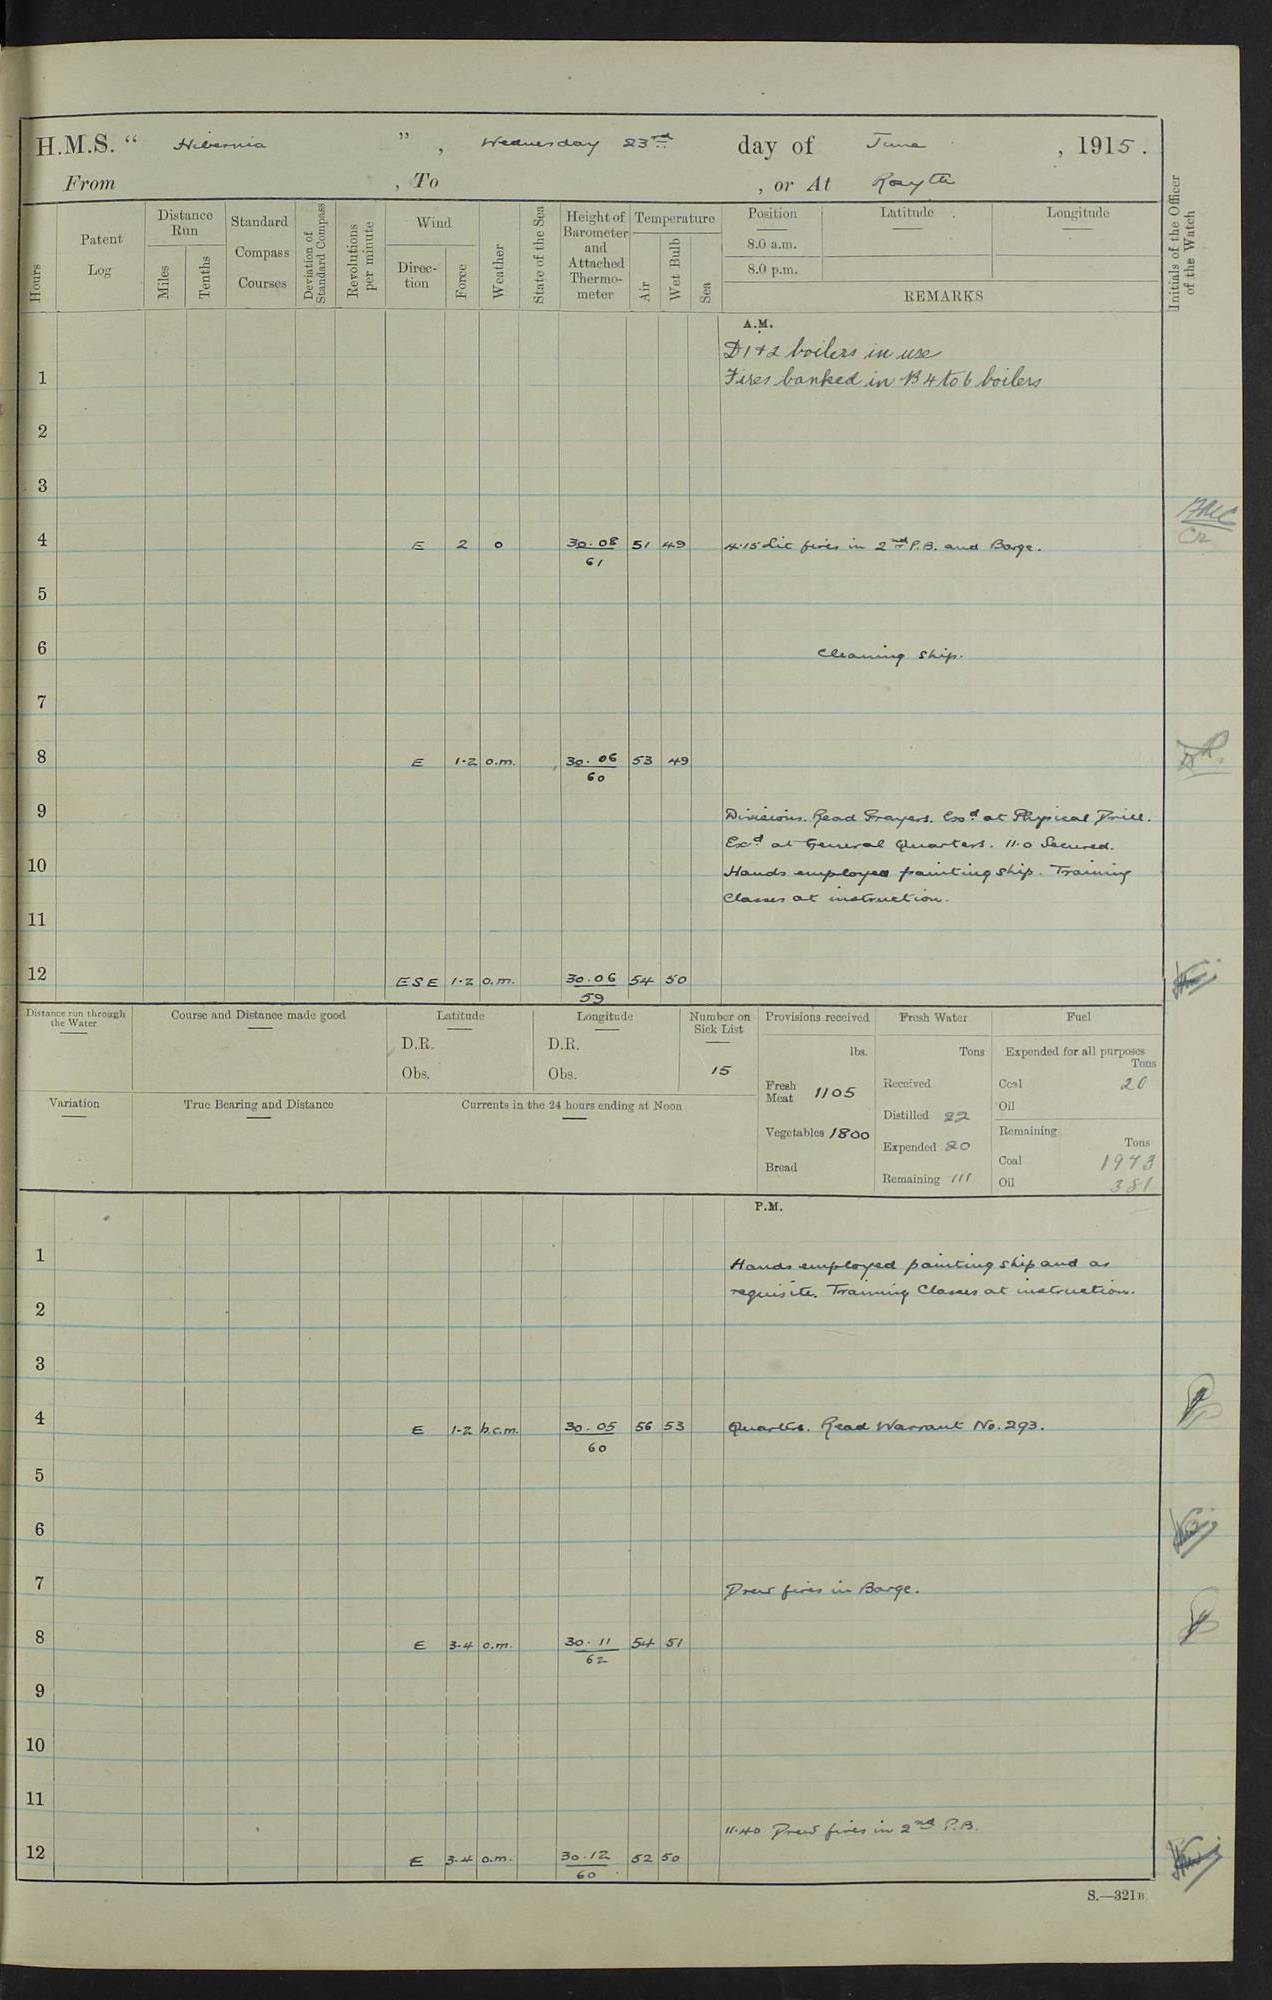 H.M.S. “ Hibernia ” , Wednesday 23rd day of June , 1915.
From , To , or At Rosyth
Hours
Patent Log
Distance Run
Miles
Tenths
Standard Compass Courses
Deviation of Standard Compass
Revolutions per minute
Wind
Direc-tion
Force
Weather
State of the Sea
Height of Barometer and Attached Thermo-meter
Temperature
Air
Wet Bulb
Sea
Position Latitude Longitude
8.0 a.m.
8.0 p.m.
REMARKS
Initials of the Officer of the Watch
A.M.
D 1+2 boilers in use
1 Fires banked in B 4 to 6 boilers
2
3
4 E 2 o 30.08 51 49 4.15 Lit fires in 2nd P.B. and Barge.
61
5
6 Cleaning ship.
7
8 E 1-2 o.m. 30.06 53 49
60
9 Divisions. Read Prayers. Exd at Physical Drill.
Exd at General Quarters. 11.0 Secured.
10 Hands employed painting ship. Training
Classes at instruction.
11
12 ESE 1-2 o.m. 30.06 54 50
59
Distance run through the Water
Course and Distance made good
Latitude
D.R.
Obs.
Longitude
D.R.
Obs.
Number on Sick List
15
Provisions received
lbs.
Fresh Meat 1105
Vegetables 1800
Bread
Fresh Water
Tons
Received
Distilled 22
Expended 20
Remaining 111
Fuel
Expended for all purposes
Tons
Coal 20
Oil
Remaining
Tons
Coal 1973
Oil 381
Variation
True Bearing and Distance
Currents in the 24 hours ending at Noon
P.M.
1 Hands employed painting ship and as
requisite. Training Classes at instruction.
2
3
4 E 1-2 b.c.m. 30.05 56 53 Quarters. Read Warrant No. 293.
60
5
6
7 Drew fires in Barge.
8 E 3-4 o.m. 30.11 54 51
62
9
10
11
11.40 Drew fires in 2nd P.B.
12 E 3-4 o.m. 30.12 52 50
60
S.—321B